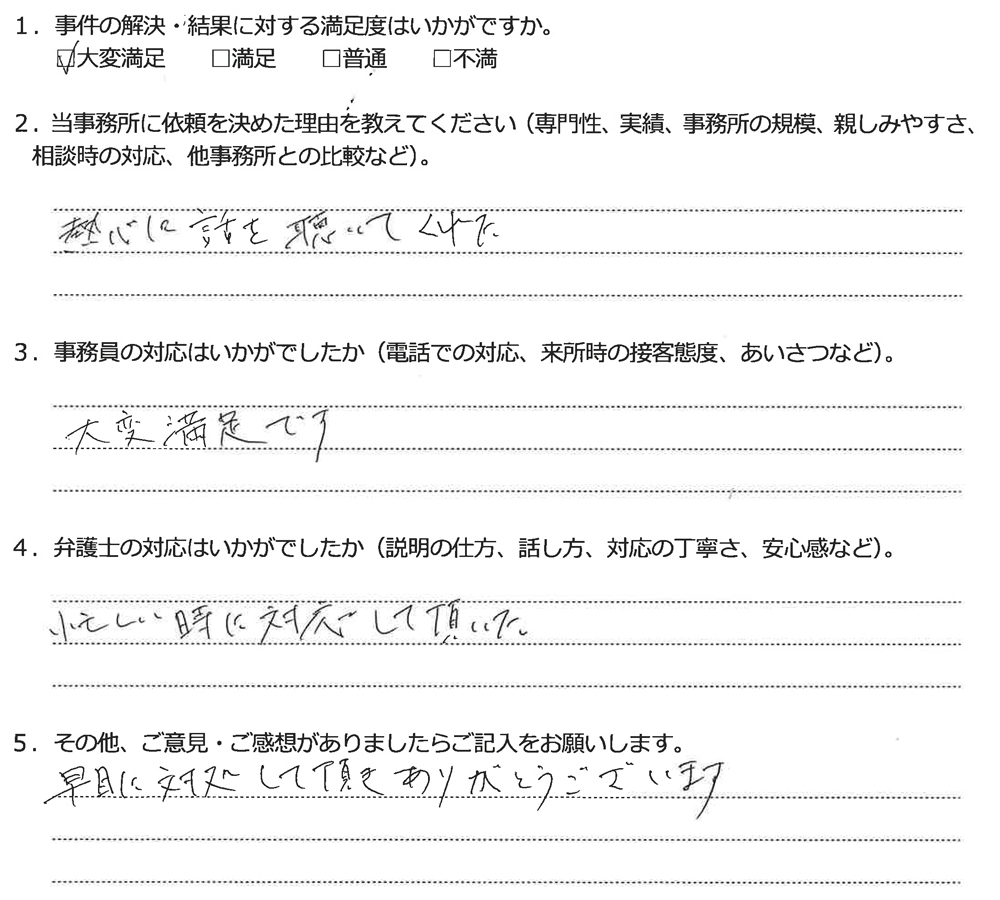 1．事件の解決・結果に対する満足度はいかがですか。
☑大変満足　□満足　□普通　□不満
2．当事務所に依頼を決めた理由を教えてください（専門性、実績、事務所の規模、親しみやすさ、
相談時の対応、他事務所との比較など）。
熱心に話を聴いてくれた
3．事務員の対応はいかがでしたか（電話での対応、来所時の接客態度、あいさつなど）。
大変満足です
4．弁護士の対応はいかがでしたか（説明の仕方、話し方、対応の丁寧さ、安心感など）。
忙しい時に対応して頂いた
5．その他、ご意見・ご感想がありましたらご記入をお願いします。
早目に対処して頂きありがとうございます